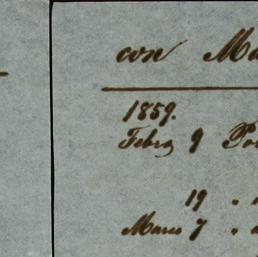 con Ma
1859.
Febro 9 Po
19 "
Marzo 7 "